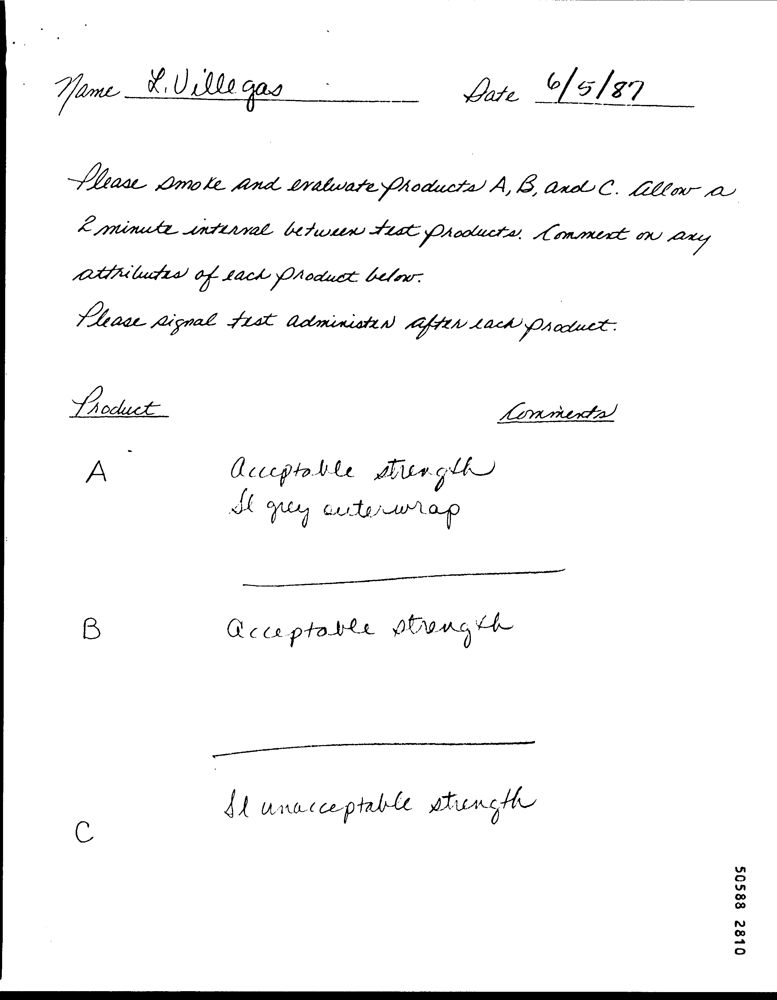 Name L. Villegas Date 6/5/87
Please smoke and evaluate products A, B, and C. Allow a
2 minute interval between test products. Comment on any
attributes of each product below.
Please signal test administer after each product.
Product Comments
A Acceptable strength
Sl grey outerwrap
B Acceptable strength
Sl unacceptable strength
C
50588 2810